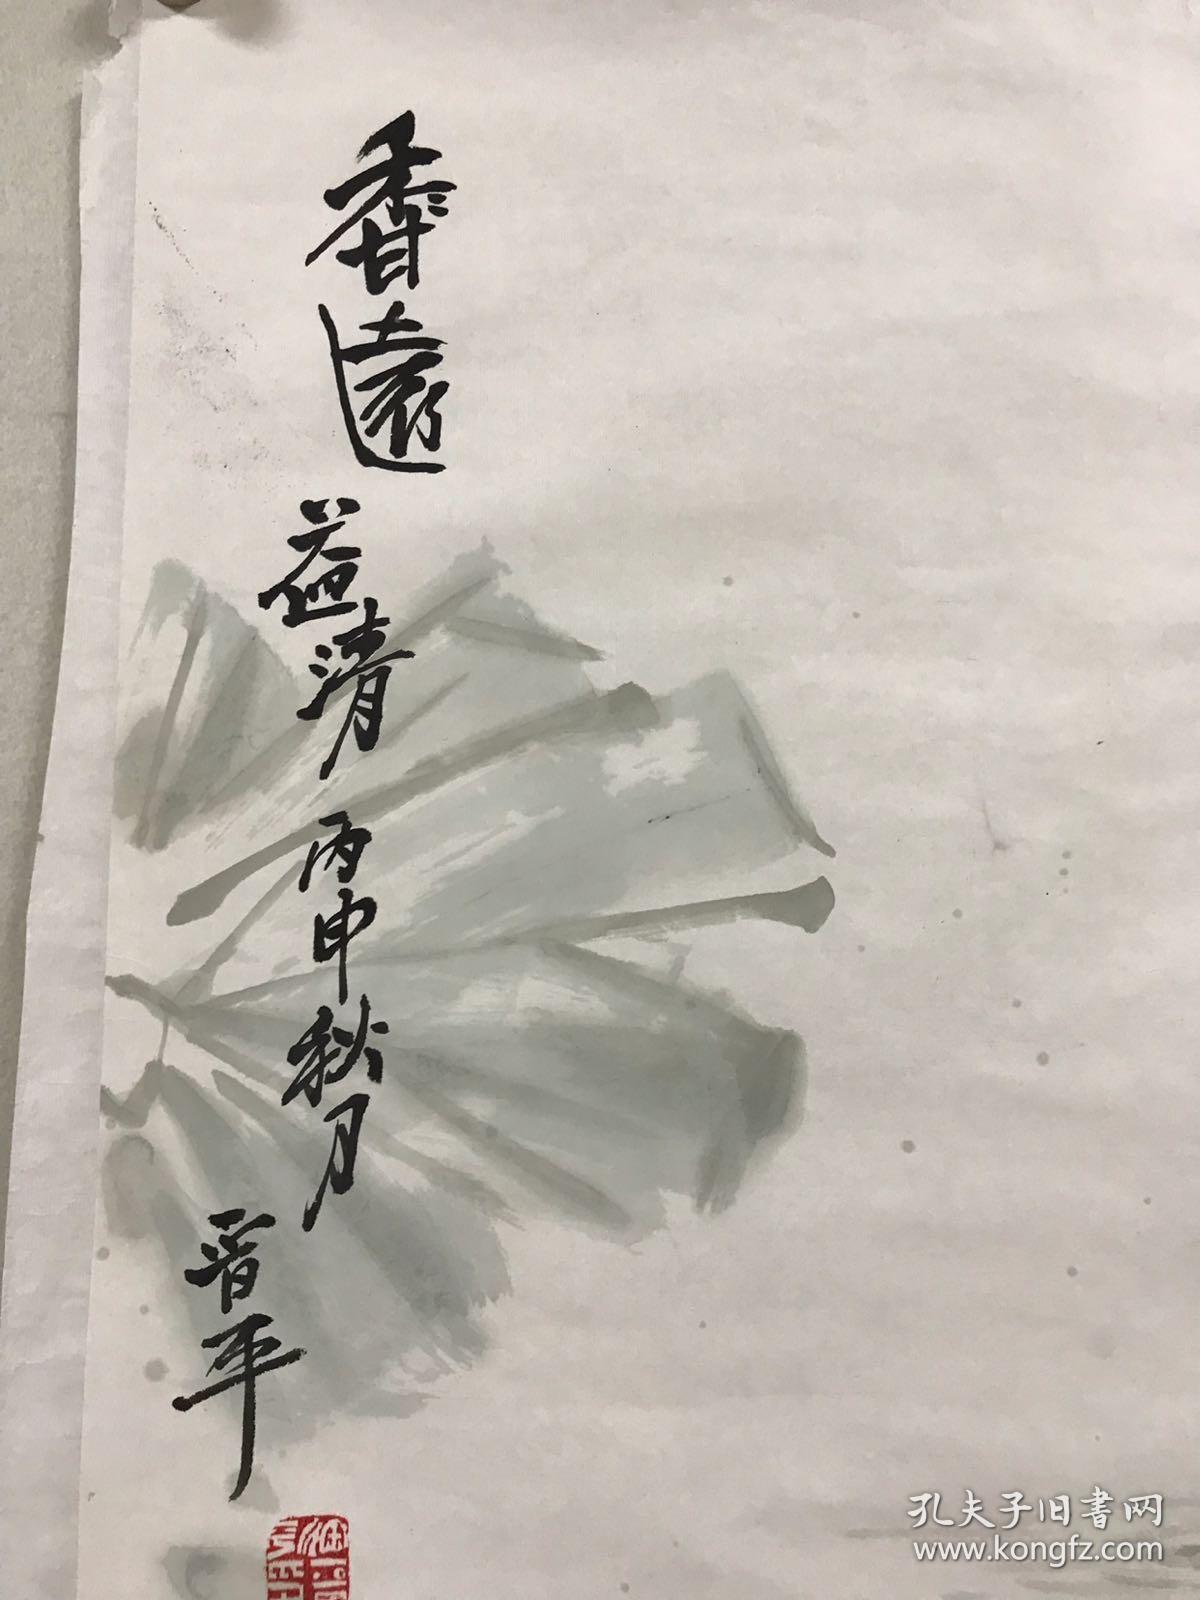 香遠益清丙申秋月
晋平
孔夫子旧書网
www.kongfz.com